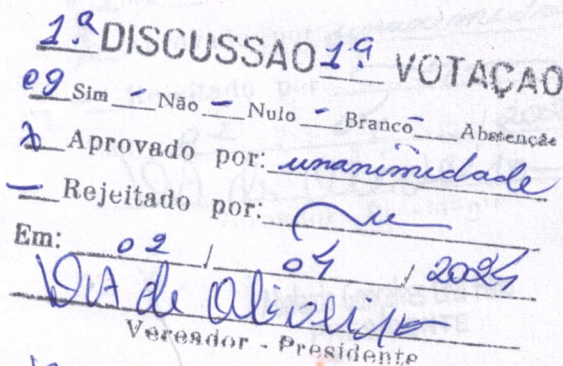 1.ª DISCUSSAO 1ª VOTAÇAO
09 Sim - Não - Nulo - Branco Abstenção
X Aprovado por: unanimidade
- Rejeitado por:
Em: 02 / 04 / 2024
de Oliveira
Vereador - Presidente